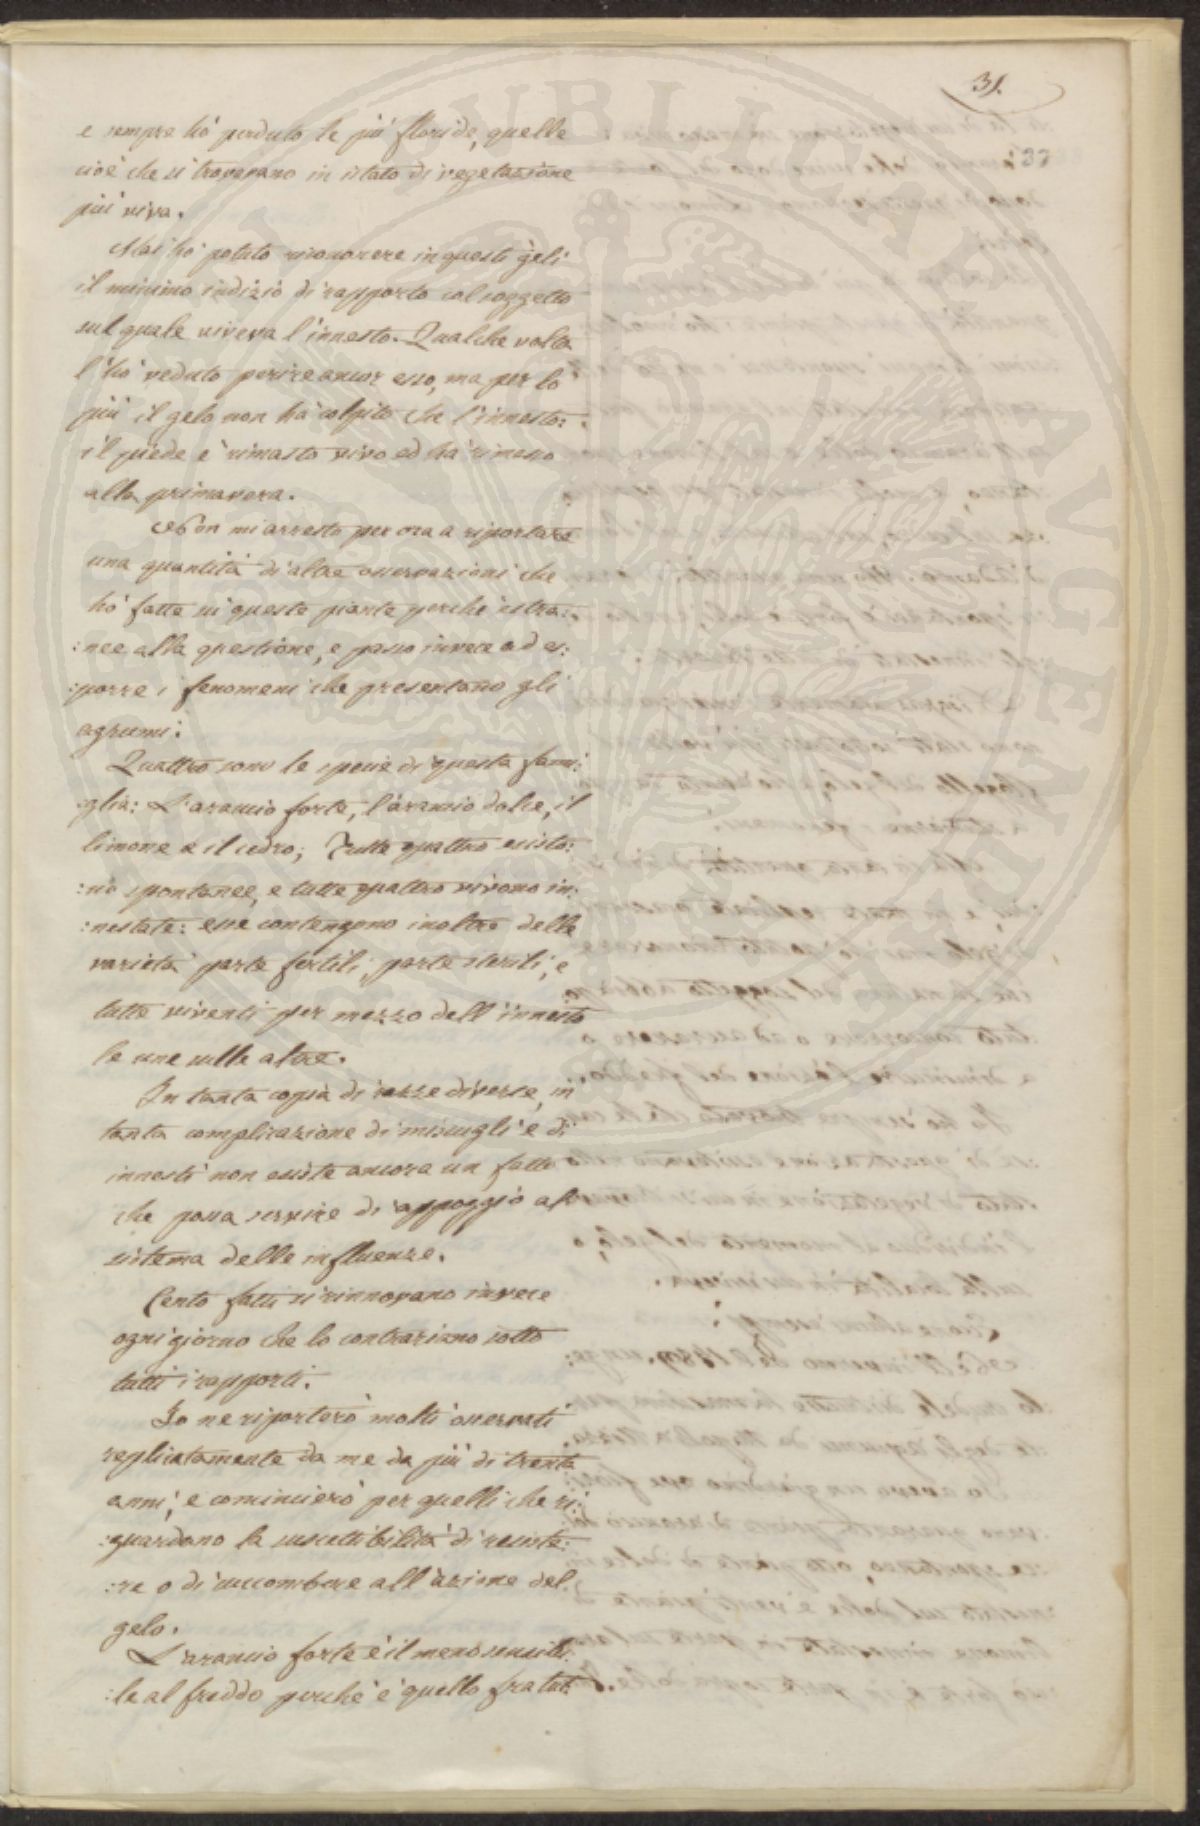 31.
37
e sempre hò perduto le più floride, quelle
cioè che si trovavano in istato di vegetazione
più viva.
Mai hò potuto riconoscere in questi geli
il minimo indizio di rapporto col soggetto
sul quale viveva l'innesto. Qualche volta
l'hò veduto perire ancor esso, ma per lo
più il gelo non hà colpito che l'innesto:
il piede è rimasto vivo ed hà rimesso
alla primavera.
Non mi arresto per ora a riportare
una quantità di altre osservazioni che
hò fatte su queste piante perchè estra:
:nee alla questione, e passo invece ad es:
:porre i fenomeni che presentano gli
agrumi:
Quattro sono le specie di questa fami:
:glia: L'arancio forte, l'arancio dolce, il
limone e il cedro; Tutte quattro esisto:
:no spontanee, e tutte quattro vivono in:
:nestate: esse contengono inoltre delle
varietà parte fertili, parte sterili, e
tutte viventi per mezzo dell'innesto
le une sulle altre.
In tanta copia di razze diverse, in
tanta complicazione di miscugli e di
innesti non esiste ancora un fatto
che possa servire di appoggio al
sistema delle influenze.
Cento fatti si rinnovano invece
ogni giorno che lo contrariano sotto
tutti i rapporti.
Io ne riporterò molti osservati
replicatamente da me da più di trenta
anni, e comincierò per quelli che ri:
:guardano la suscettibilità di resiste:
:re o di soccombere all'azione del
gelo.
L'arancio forte è il meno sensibi:
:le al freddo perchè è quello fra tut: